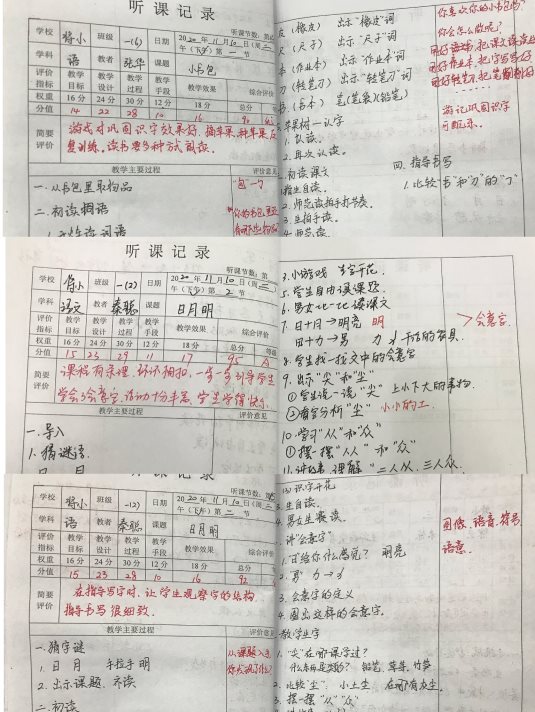 听课记录
学校 将小 班级 一(6) 日期 2020年11月10日(周二
午(下午)第一节
学科 语 教者 张华 课题 小书包
评价指标 教学目标 教学设计 教学过程 教学手段 教学效果 综合评价
权重 16分 24分 30分 12分 18分 总分
分值 14 22 28 10 16 90
简要评价
游戏对巩固识字效果好,摘苹果,种苹果反
复训练。读书要多种方式阅读。
教学主要过程 评价意见
一.从书包里取物品
二.初读词语
皮(橡皮) 出示“橡皮”词
尺(尺子) 出示“尺子”词
本(作业本) 出示“作业本”词
刀(转笔刀) 出示“转笔刀”词
书(书本) 笔(笔袋)(铅笔)
苹果树—认字
1.认读。
2.再次认读。
初读课文
1.指生自读。
2.师范读拍手打节奏。
3.生拍手读。
4.师范读
四.指导书写
1.比较“书”和“刀”的“㇆”
你喜欢你的小书包吗?
你会怎么做呢?
游记巩固识字
听课记录
听课节数:第
学校 将小 班级 一(2) 日期 2020年11月10日(周二
午(下午)第2节
学科 语文 教者 秦聪 课题 日月明
评价指标 教学目标 教学设计 教学过程 教学手段 教学效果 综合评价
权重 16分 24分 30分 12分 18分 总分
分值 15 23 29 11 17 95
简要评价
课程有条理,环环相扣,一步一步引导学生
学会了会意字,活动十分丰富,学生学得快乐
教学主要过程 评价意见
一.导入
1.猜谜语。
3.小游戏 生字开花。
5.学生自由读课题。
6.男女比一比读课文
7.日+月→明亮 明
田+力→男
会意字。
8.学生找一找文中的会意字
9.出示“尖”和“尘”
①学生说一说“尖” 上小下大的事物。
②看图分析“尘” 小小的土。
10.学习“从”和“众”
①摆一摆“人人” 和“众”
11.讲故事 理解“二人从,三人众。
听课记录
学校 将小 班级 一(2) 日期 2020年11月10日(周二
午(下午)第二节
学科 语 教者 秦聪 课题 日月明
评价指标 教学目标 教学设计 教学过程 教学手段 教学效果 综合评
权重 16分 24分 30分 12分 18分 总分
分值 15 23 28 10 16 92
简要评价
在指导写字时,让学生观察字的结构,
指导书写很细致。
教学主要过程 评价意见
一.猜字谜
1.日 月 手拉手 明
2.出示课题、齐读
二.初读
从课题入手
你发现了什么?
(3)识字开花
3.生自读。
4.男女生赛读。
讲“会意字”
1.“日”给你什么感觉? 明亮
2.“男” 力→
3.会意字的定义
4.圈出这样的会意字。
教学生字
1.“尖”在哪课学过?
什么东西是尖的? 铅笔、草芽、竹笋
2.比较“尘”: 小土尘 在哪有灰尘。
3.摆一摆“从”“众”
图像、语音、符号
语意。